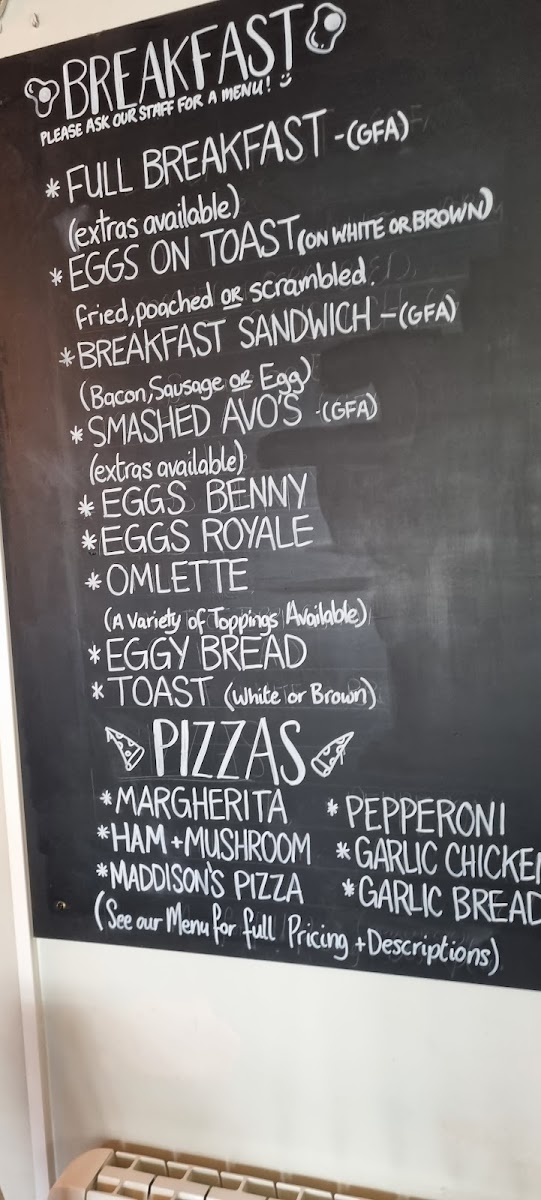 BREAKFAST
PLEASE ASK OUR STAFF FOR A MENU! :)
* FULL BREAKFAST - (GFA)
(extras available)
* EGGS ON TOAST (ON WHITE OR BROWN)
fried, poached OR scrambled.
* BREAKFAST SANDWICH - (GFA)
(Bacon, Sausage OR Egg)
* SMASHED AVO'S - (GFA)
(extras available)
* EGGS BENNY
* EGGS ROYALE
* OMLETTE
(A variety of Toppings Available)
* EGGY BREAD
* TOAST (White or Brown)
PIZZAS
* MARGHERITA * PEPPERONI
* HAM + MUSHROOM * GARLIC CHICKE
* MADDISON'S PIZZA * GARLIC BREAD
(See our Menu for full Pricing + Descriptions)